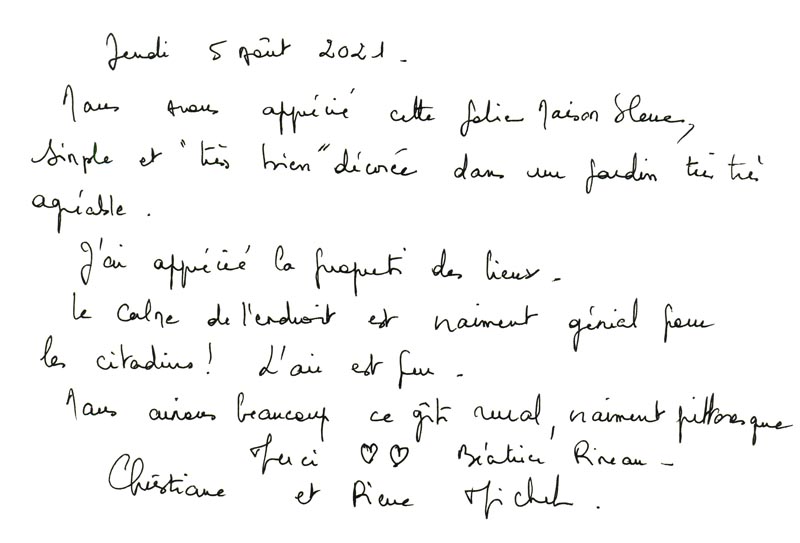 Jeudi 5 Août 2021.
Nous avons apprécié cette jolie Maison Bleue,
simple et "très bien" décorée dans un jardin très très
agréable.
J'ai apprécié la propreté des lieux.
Le calme de l'endroit est vraiment génial pour
les citadins! L'air est pur.
Nous aimons beaucoup ce gîte rural, vraiment pittoresque
Merci ♡♡ Béatrice Rineau -
Christiane et Pierre Michel.